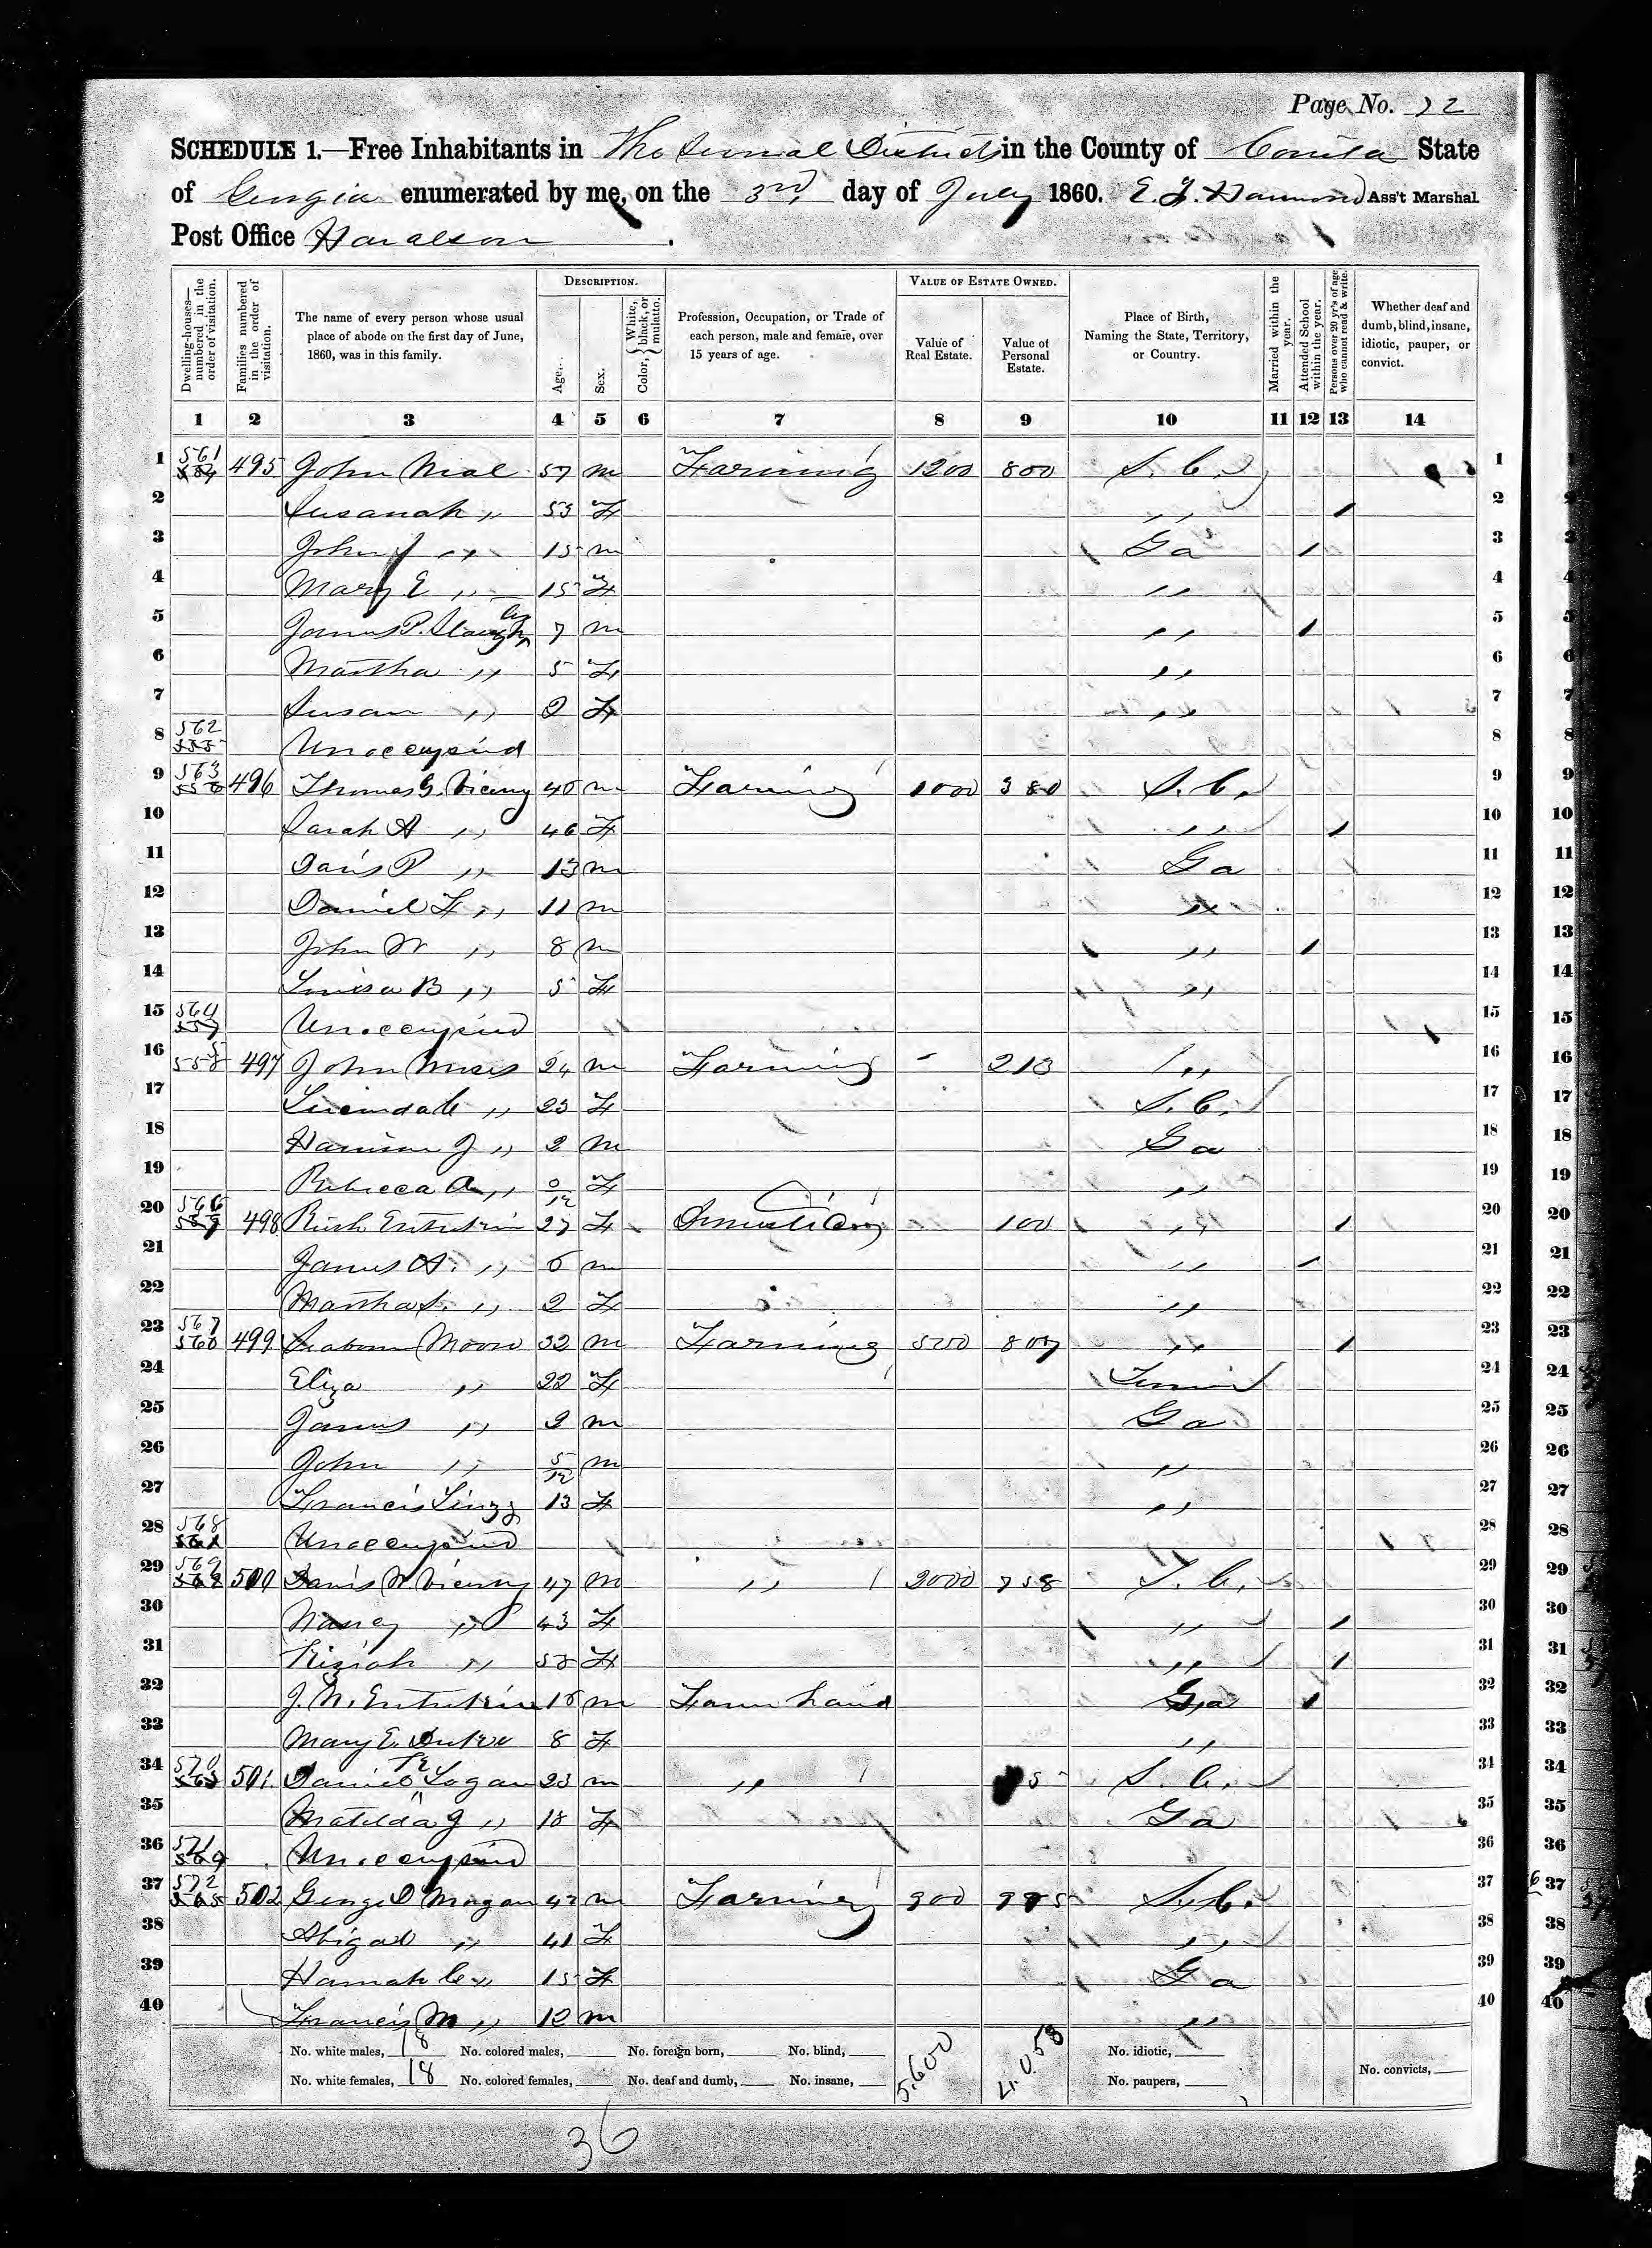 Page No. 72
SCHEDULE 1.—Free Inhabitants in The Second District in the County of Coweta State
of Georgia enumerated by me, on the 3rd day of July 1860. Ass't Marshal
Post Office Haralson
DESCRIPTION. VALUE OF ESTATE OWNED.
Dwelling-houses—numbered in the order of visitation. Families numbered in the order of visitation. The name of every person whose usual place of abode on the first day of June, 1860, was in this family. Age. Sex. Color, { White, black, or mulatto. Profession, Occupation, or Trade of each person, male and female, over 15 years of age. Value of Real Estate. Value of Personal Estate. Place of Birth, Naming the State, Territory, or Country. Married within the year. Attended School within the year. Persons over 20 yr's of age who cannot read & write. Whether deaf and dumb, blind, insane, idiotic, pauper, or convict.
1 2 3 4 5 6 7 8 9 10 11 12 13 14
1 561 495 John Neal 57 m Farming 1200 800 S. C. 1
2 Susanah ,, 53 F ,, / 2
3 John J ,, 15 m Ga / 3
4 Mary E ,, 15 F ,, 4
5 James P. 7 m ,, / 5
6 Martha ,, 5 F ,, 6
7 Susan ,, 2 F ,, 7
8 562 Unoccupied 8
9 563 496 Thomas G. 40 m Farming 1000 380 S. C. 9
10 Sarah A ,, 46 F ,, / 10
11 Davis P ,, 13 m Ga 11
12 Daniel F ,, 11 m ,, 12
13 John W ,, 8 m ,, / 13
14 Louisa B ,, 5 F ,, 14
15 564 Unoccupied 15
16 497 John 24 m Farming - 213 ,, 16
17 ,, 23 F S. C. 17
18 Harrison J ,, 2 m Ga 18
19 Rebecca A ,, F ,, 19
20 566 498 27 F 100 ,, / 20
21 James A. ,, 6 m ,, / 21
22 Martha S. ,, 2 F ,, 22
23 567 499 Seaborn Moore 32 m Farming 500 807 ,, / 23
24 Eliza ,, 22 F 24
25 James ,, 2 m Ga 25
26 John ,, 5/12 m ,, 26
27 Francis 13 F ,, 27
28 568 Unoccupied 28
29 569 500 Davis W. 47 m ,, 2000 758 S. C. 29
30 Nancy ,, 43 F ,, / 30
31 Kiziah ,, F ,, / 31
32 J. N. m Farm hand Ga / 32
33 Mary E. 8 F ,, 33
34 570 501 Daniel Logan 23 m ,, S. C. 34
35 Matilda J ,, 18 F Ga 35
36 571 Unoccupied 36
37 572 502 George D Morgan 42 m Farming 900 S. C. 37
38 Abigal ,, 41 F ,, 38
39 Hannah C ,, 15 F Ga 39
40 Francis M ,, 12 m ,, 40
No. white males, 18 No. colored males, No. foreign born, No. blind, 5,600 4,058 No. idiotic,
No. white females, 18 No. colored females, No. deaf and dumb, No. insane, No. paupers, No. convicts,
36